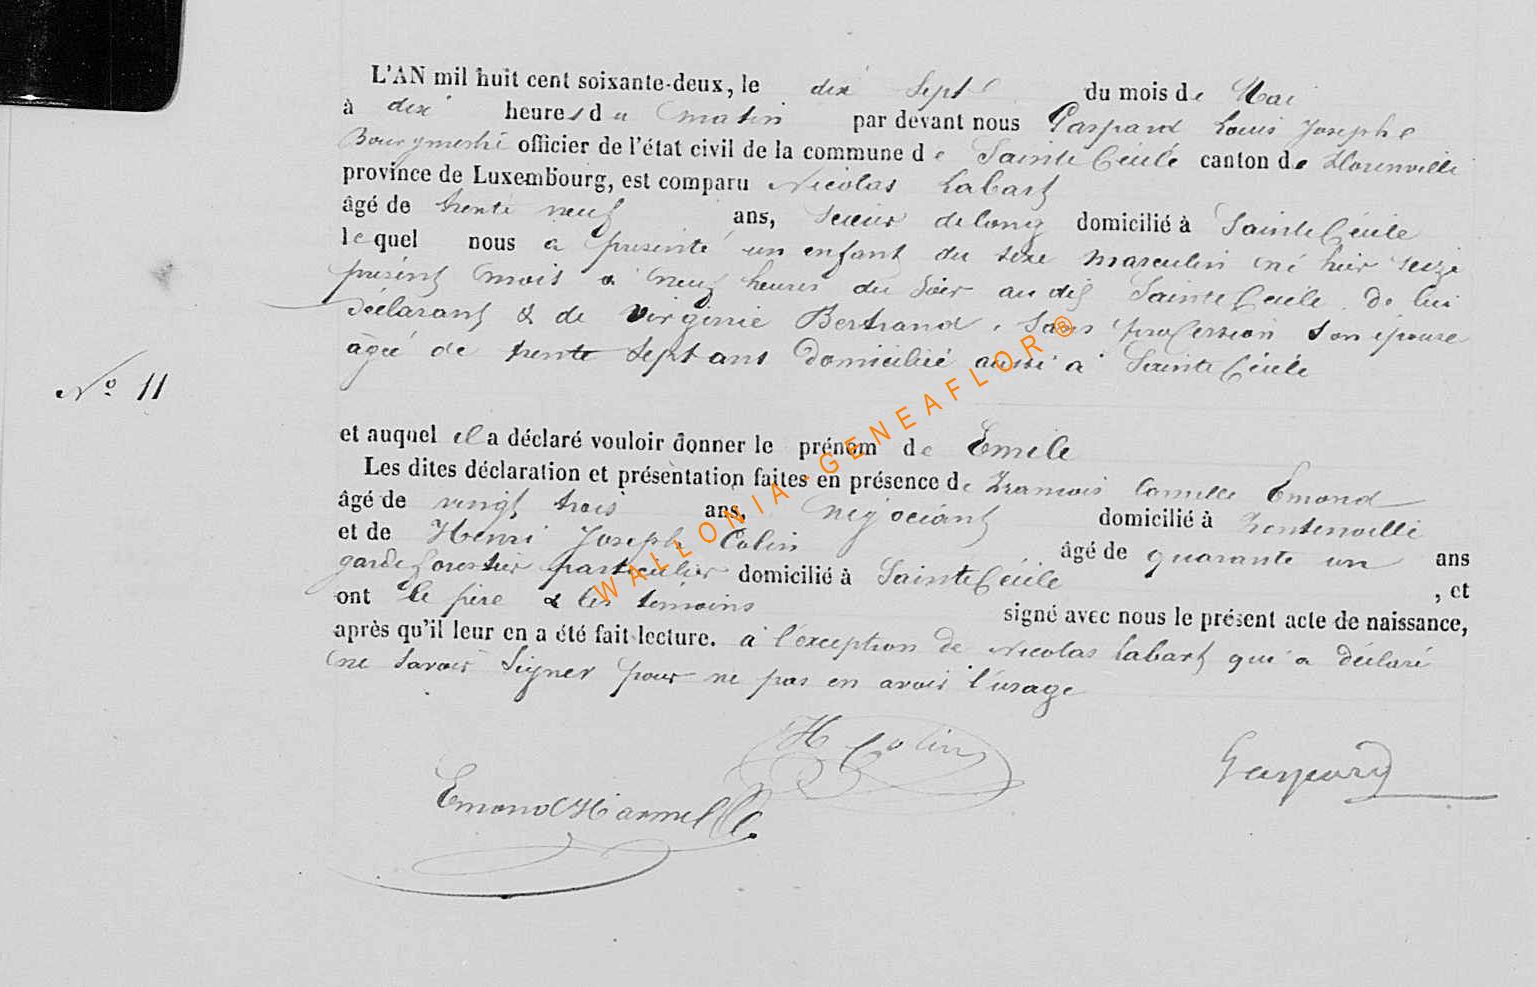 L'AN mil huit cent soixante-deux, le dix Sept du mois de Mai
à dix heures du matin par devant nous Gaspard Louis Josephe
Bourgmestre officier de l'état civil de la commune de Sainte Cécile canton de Florenville
province de Luxembourg, est comparu Nicolas Labart
âgé de trente neuf ans, Scieur de long domicilié à Sainte Cécile
lequel nous a présenté un enfant du sexe masculin né hier seize
présent mois à neuf heures du Soir au dit Sainte Cécile de lui
déclarant & de Virginie Bertrand, Sans profession Son épouse
âgée de trente Sept ans Domiciliée aussi à Sainte Cécile
N° 11
et auquel il a déclaré vouloir donner le prénom de Emile
Les dites déclaration et présentation faites en présence de François Camille Emond
âgé de vingt trois ans, négociant domicilié à
et de Henri Joseph Colin âgé de quarante un ans
garde forestier particulier domicilié à Sainte Cécile , et
ont le père & les témoins signé avec nous le présent acte de naissance,
après qu'il leur en a été fait lecture. à l'exception de Nicolas Labart qui a déclaré
ne savoir Signer pour ne pas en avoir l'usage
H Colin
Gaspard
Emond
WALLONIA-GENEAFLOR®